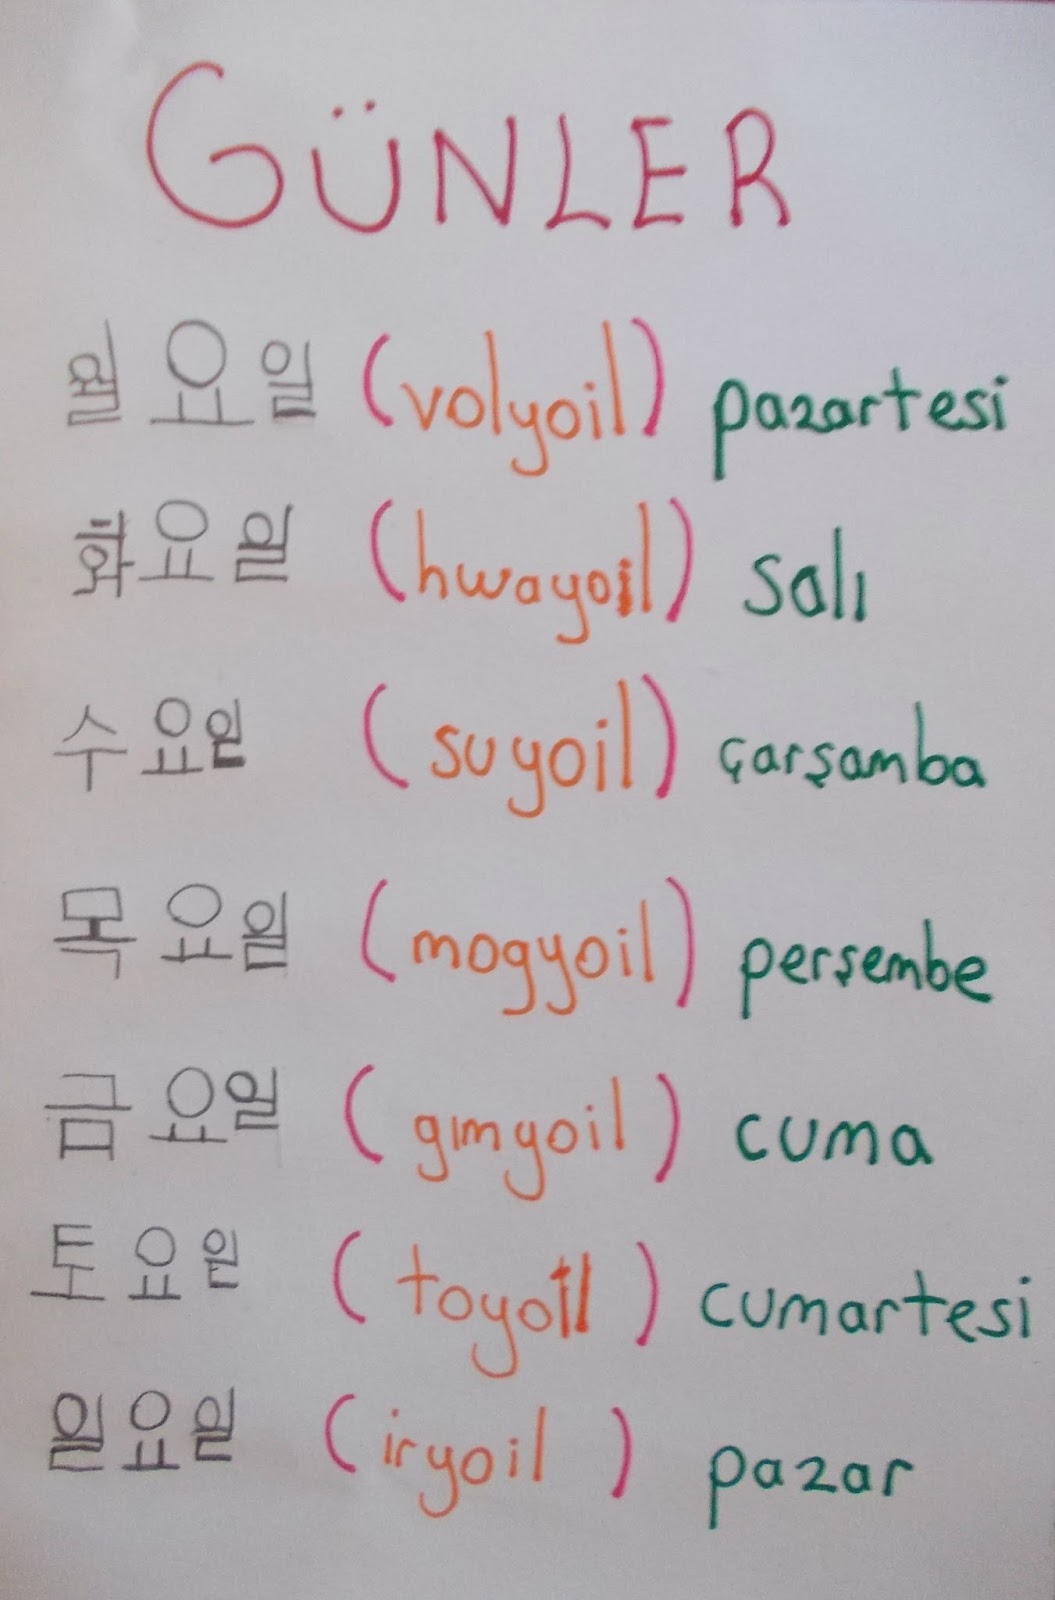 GÜNLER
월 요 일 (volyoil) pazartesi
화 요 일 (hwayoil) salı
수 요 일 (suyoil) çarşamba
목 요 일 (mogyoil) perşembe
금 요 일 (gımyoil) cuma
토 요 일 (toyoil) cumartesi
일 요 일 (iryoil) pazar